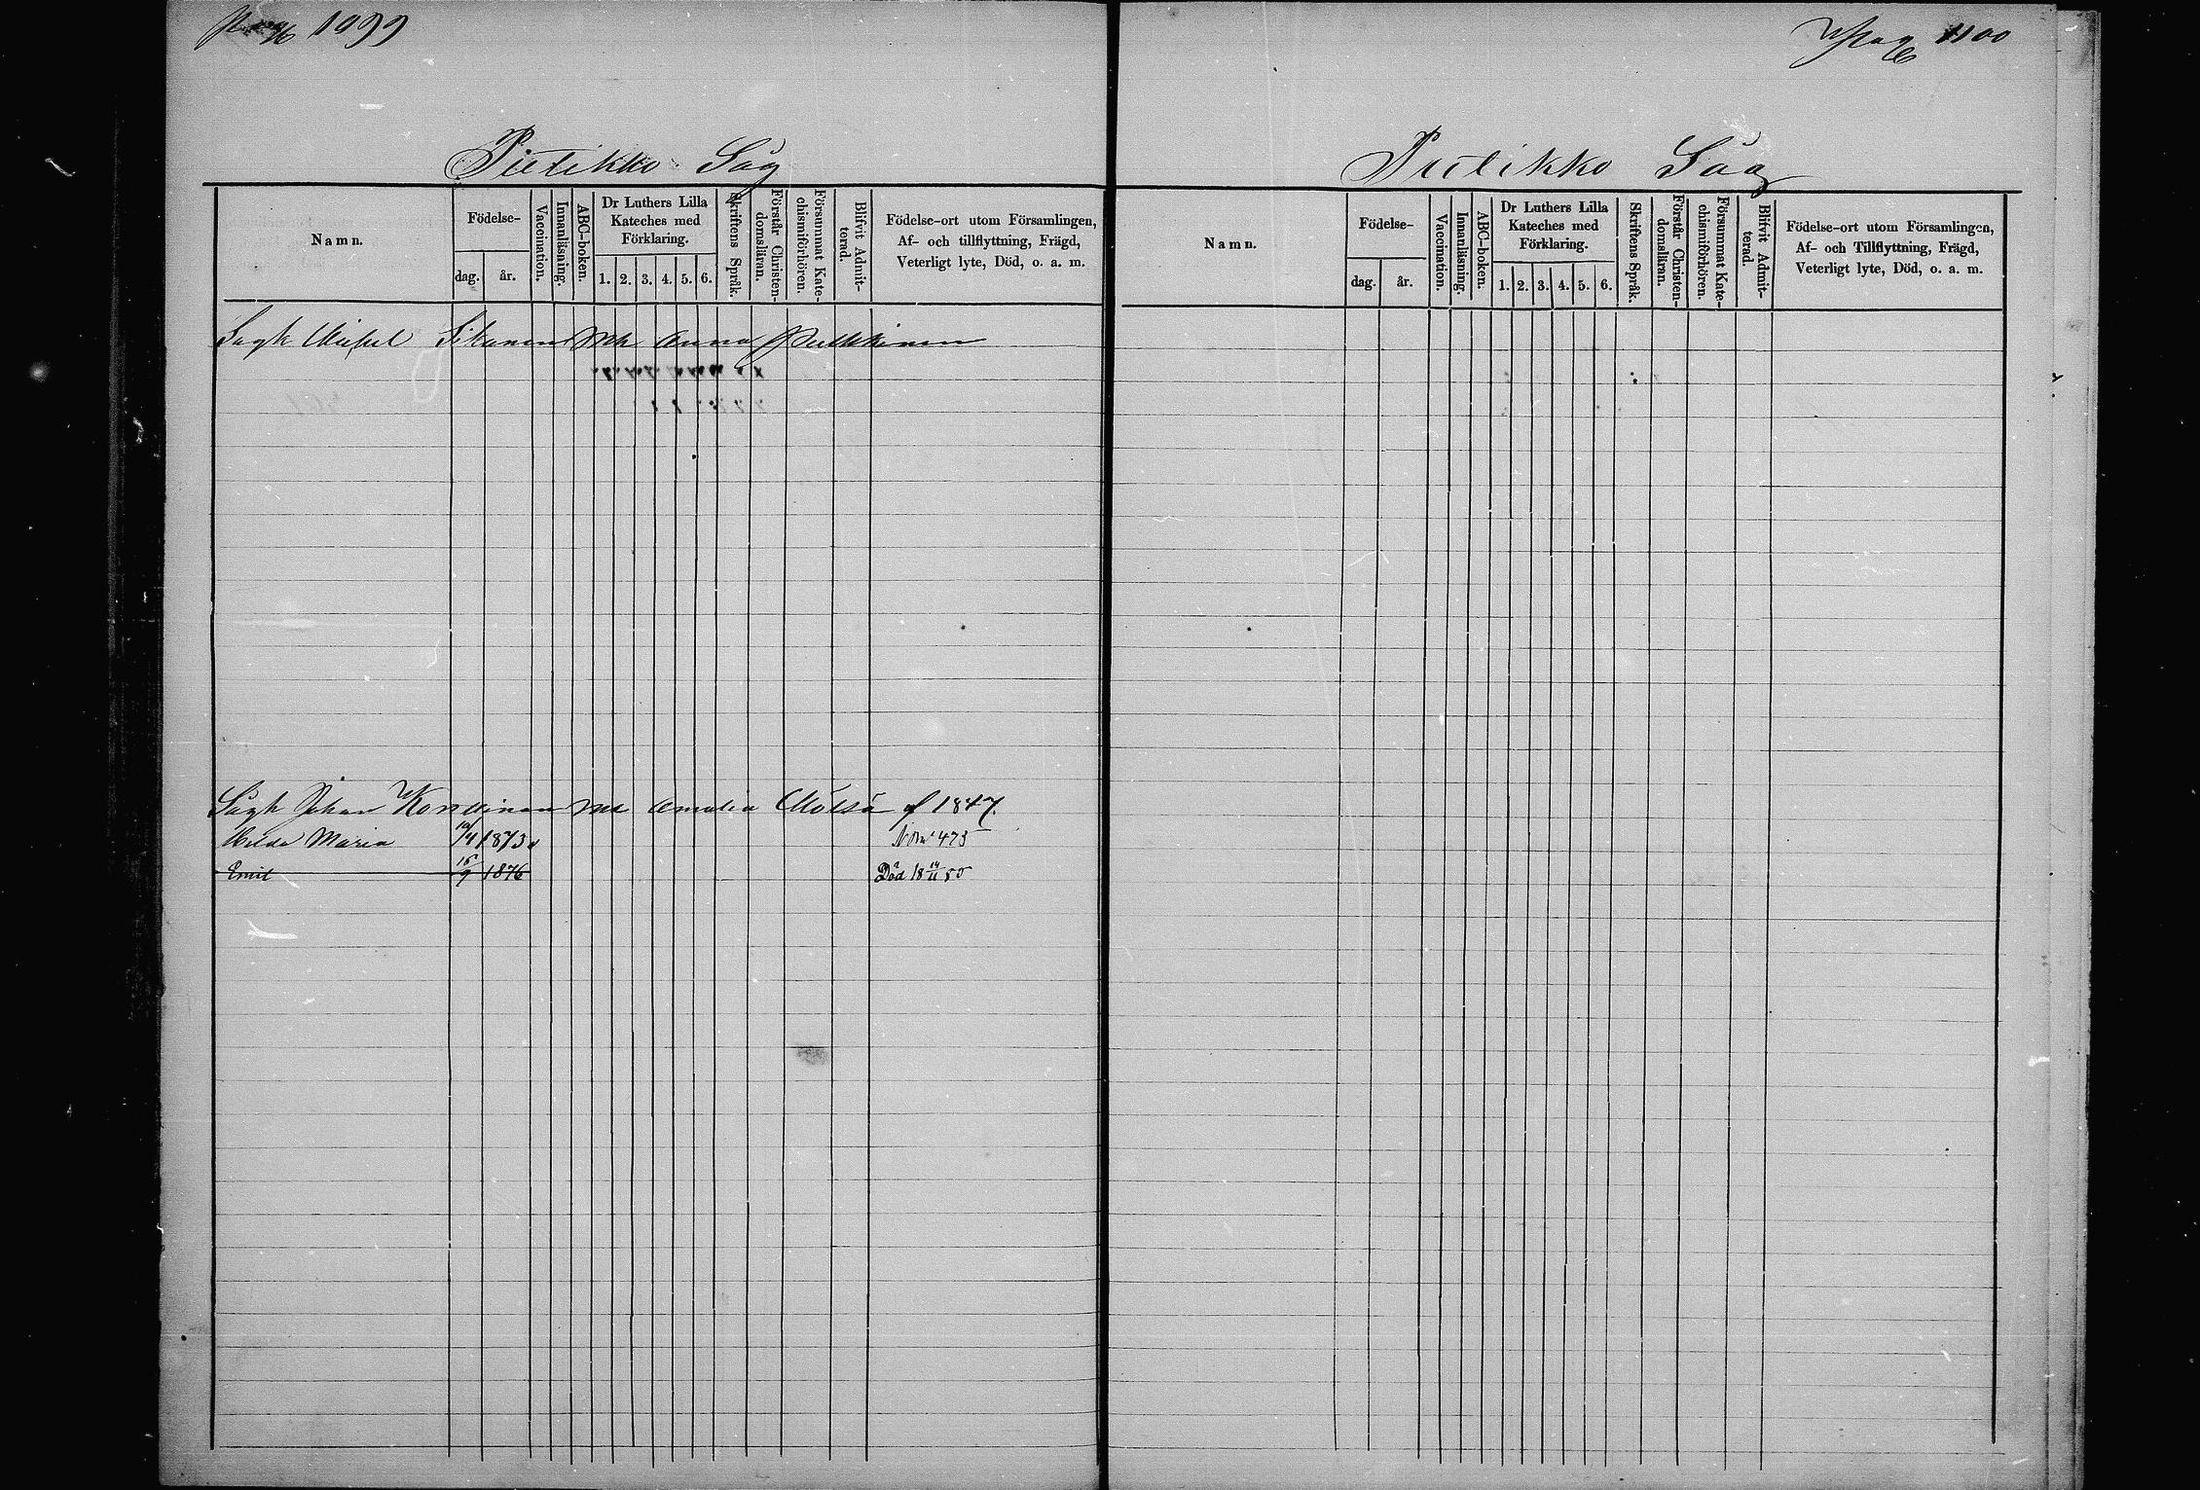 Pag 1099
Pietikko Såg
Namn.
Födelse-
dag.
år.
Vaccination.
Innanläsning.
ABC-boken.
Dr Luthers Lilla
Kateches med
Förklaring.
1. 2. 3. 4. 5. 6.
Skriftens Språk.
Förstår Christen-
domsläran.
Försummat Kate-
chismiförhören.
Blifvit Admit-
terad.
Födelse-ort utom Församlingen,
Af- och tillflyttning, Frägd,
Veterligt lyte, Död, o. a. m.
Sagk Michel Sikanen Mh Anna Pulkkinen
Sågk Johan Korvvinen Mh Amalia Mölsä gf 1847.
Hilda Maria 10/4 1873 473
Emil 15/9 1876 Död 18 14/11 80
Pag 1100
Pietikko Såg
Namn.
Födelse-
dag.
år.
Vaccination.
Innanläsning.
ABC-boken.
Dr Luthers Lilla
Kateches med
Förklaring.
1. 2. 3. 4. 5. 6.
Skriftens Språk.
Förstår Christen-
domsläran.
Försummat Kate-
chismiförhören.
Blifvit Admit-
terad.
Födelse-ort utom Församlingen,
Af- och Tillflyttning, Frägd,
Veterligt lyte, Död, o. a. m.